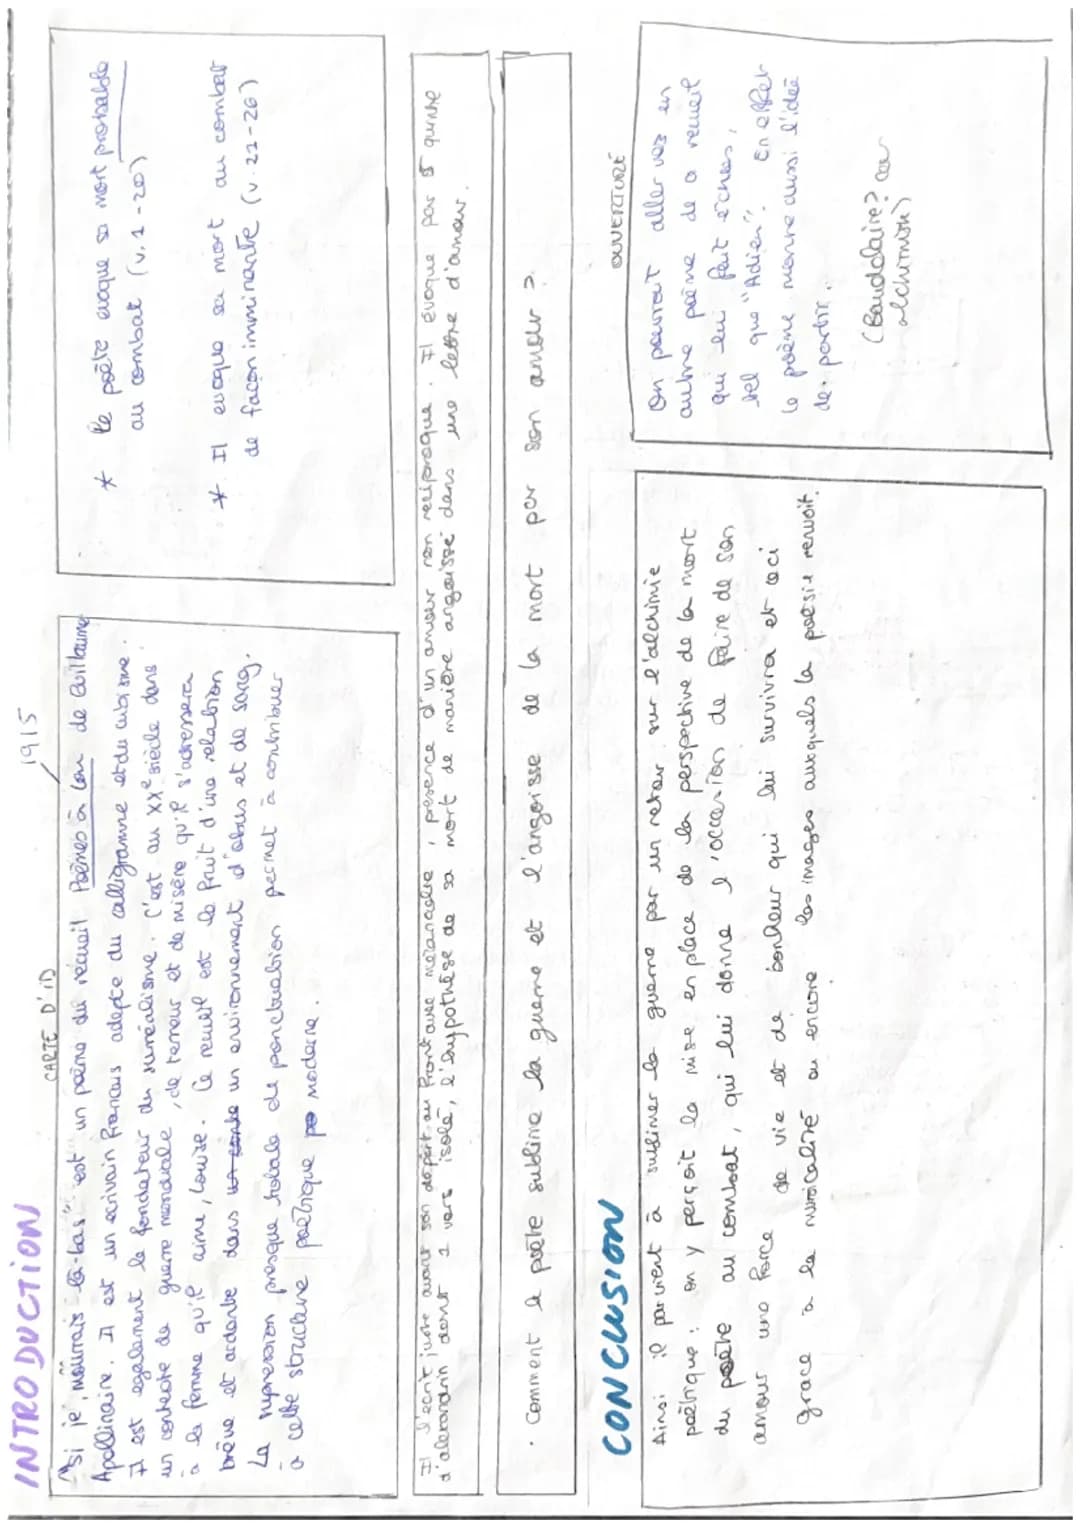 INTRODUCTION
CARTE D'ID
1915
"Si je mourrais là-bas" est un poème du recueil Poèmes à Lou de Guillaume
Apollinaire. Il est un écrivain français adepte du calligramme et du cubisme.
Il est également le fondateur du surréalisme. C'est au XXe siècle dans
un contexte de guerre mondiale, de terreur et de misère qu'il s'adressera
à la femme qu'il aime, Louise. Ce recueil est le fruit d'une relation
brève et ardente dans un environnement d'obus et de sang.
La supression presque totale de ponctuation permet à contribuer
à cette structure poétique moderne.
* Le poète évoque sa mort probable
au combat (v.1-20)
* Il evoque sa mort au combat
de façon imminante (v.21-26)
Il s'écrit juste avant son départ au front avec mélancolie, présence d'un amour non réciproque. Il évoque par 5 quinte
d'alexandrin dont 1 vers isolé, l'hypothèse de sa mort de manière angoissé dans une lettre d'amour.
. Comment le poète sublime la guerre et l'angoisse de la mort par son amour ?
CONCLUSION
Ainsi il parvient à sublimer la guerre par un retour sur l'alchimie
poétique : on y perçoit la mise en place de la perspective de la mort
du poète au combat, qui lui donne l'occasion de faire de son
amour une force de vie et de bonheur qui lui survivra et ceci
grace à la musicalité ou encore les images auxquels la poésie renvoit.
OUVERTURE
On pourrait aller vers en
autre poème de a recueil
qui lui fait échos,
tel que "Adieu". En effet
le poème montre aussi l'idée
de partir.
(Baudelaire? car
alchimiste)